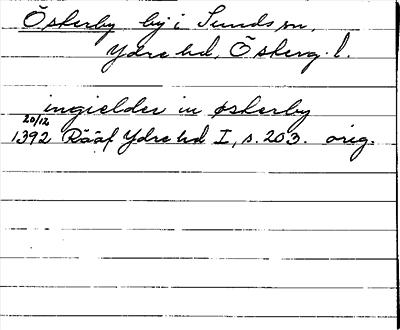 Öskerby by i Sunds sn,
Ydre hd, Österg. l.
ingielder in øskerby
20/12
1392 Rääf Ydre hd I, s. 203. orig.